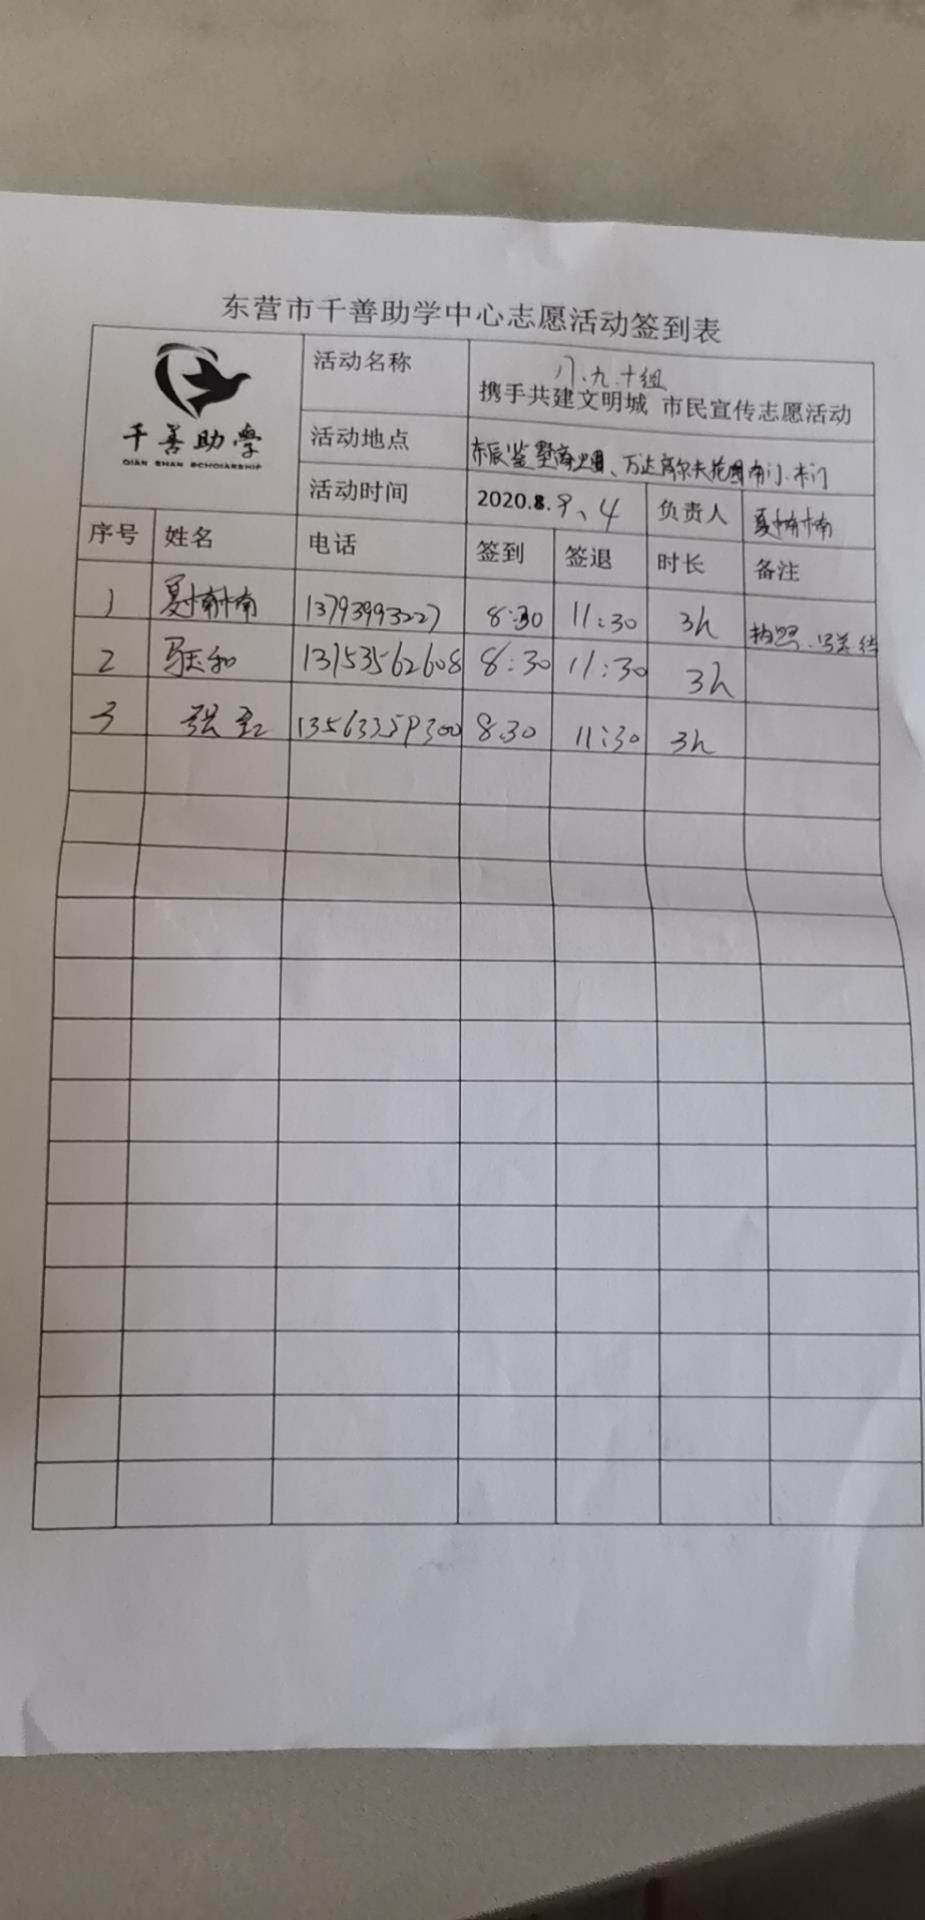 东营市千善助学中心志愿活动签到表
千善助学
QIAN SHAN SCHOLARSHIP
活动名称
八.九.十组
携手共建文明城 市民宣传志愿活动
活动地点 万达高尔夫花园南门.东门
活动时间 2020.8. 负责人 夏楠楠
序号 姓名 电话 签到 签退 时长 备注
1 夏楠楠 13793993227 8:30 11:30 3h 拍照.写总结
2 13153562608 8:30 11:30 3h
3 8:30 11:30 3h